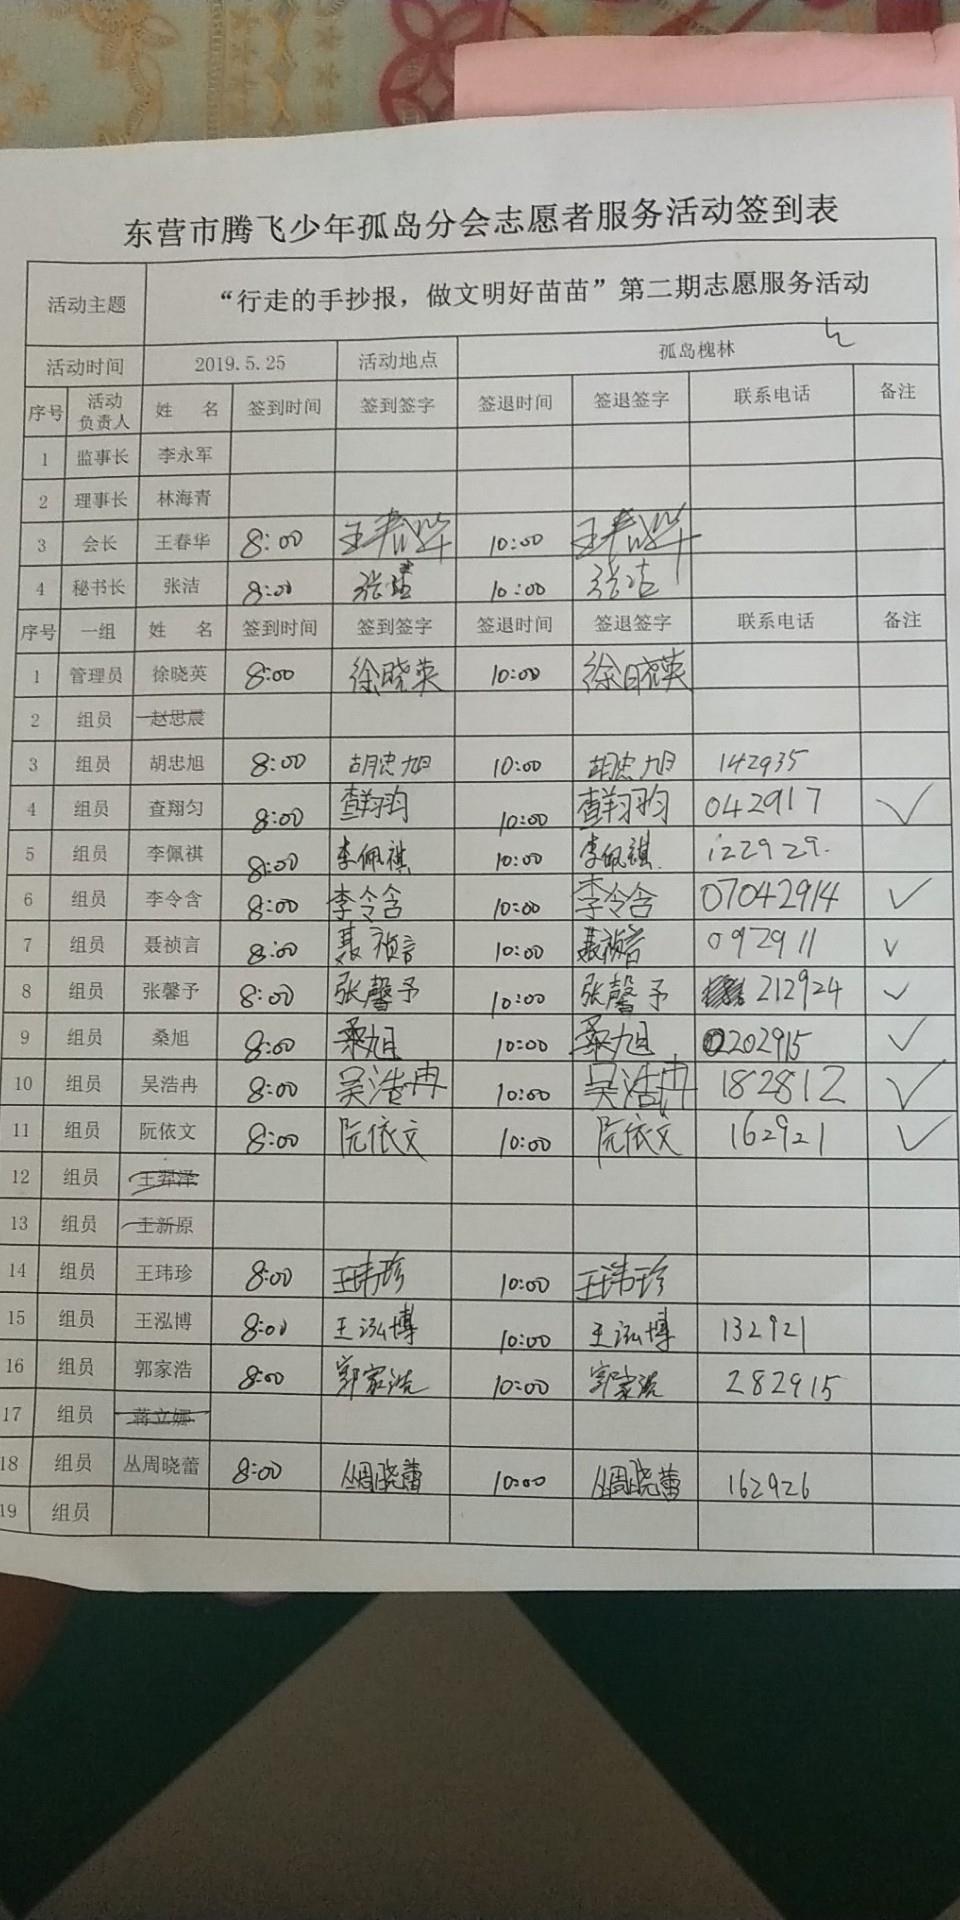 东营市腾飞少年孤岛分会志愿者服务活动签到表
活动主题 “行走的手抄报，做文明好苗苗”第二期志愿服务活动
活动时间 2019.5.25 活动地点 孤岛槐林
序号 活动负责人 姓 名 签到时间 签到签字 签退时间 签退签字 联系电话 备注
1 监事长 李永军
2 理事长 林海青
3 会长 王春华 8:00 王春华 10:00 王春华
4 秘书长 张洁 8:00 张洁 10:00 张洁
序号 一组 姓 名 签到时间 签到签字 签退时间 签退签字 联系电话 备注
1 管理员 徐晓英 8:00 徐晓英 10:00 徐晓英
2 组员 赵思晨
3 组员 胡忠旭 8:00 胡忠旭 10:00 胡忠旭 142935
4 组员 查翔匀 8:00 查翔匀 10:00 查翔匀 042917 ✓
5 组员 李佩祺 8:00 李佩祺 10:00 李佩祺 122929.
6 组员 李令含 8:00 李令含 10:00 李令含 07042914 ✓
7 组员 聂祯言 8:00 聂祯言 10:00 聂祯言 092911 ✓
8 组员 张馨予 8:00 张馨予 10:00 张馨予 212924 ✓
9 组员 桑旭 8:00 桑旭 10:00 桑旭 0202915 ✓
10 组员 吴浩冉 8:00 吴浩冉 10:00 吴浩冉 182812 ✓
11 组员 阮依文 8:00 阮依文 10:00 阮依文 162921 ✓
12 组员 王羿泽
13 组员 王新原
14 组员 王玮珍 8:00 王玮珍 10:00 王玮珍
15 组员 王泓博 8:00 王泓博 10:00 王泓博 132921
16 组员 郭家浩 8:00 郭家浩 10:00 郭家浩 282915
17 组员 蒋立娜
18 组员 丛周晓蕾 8:00 丛周晓蕾 10:00 丛周晓蕾 162926
19 组员